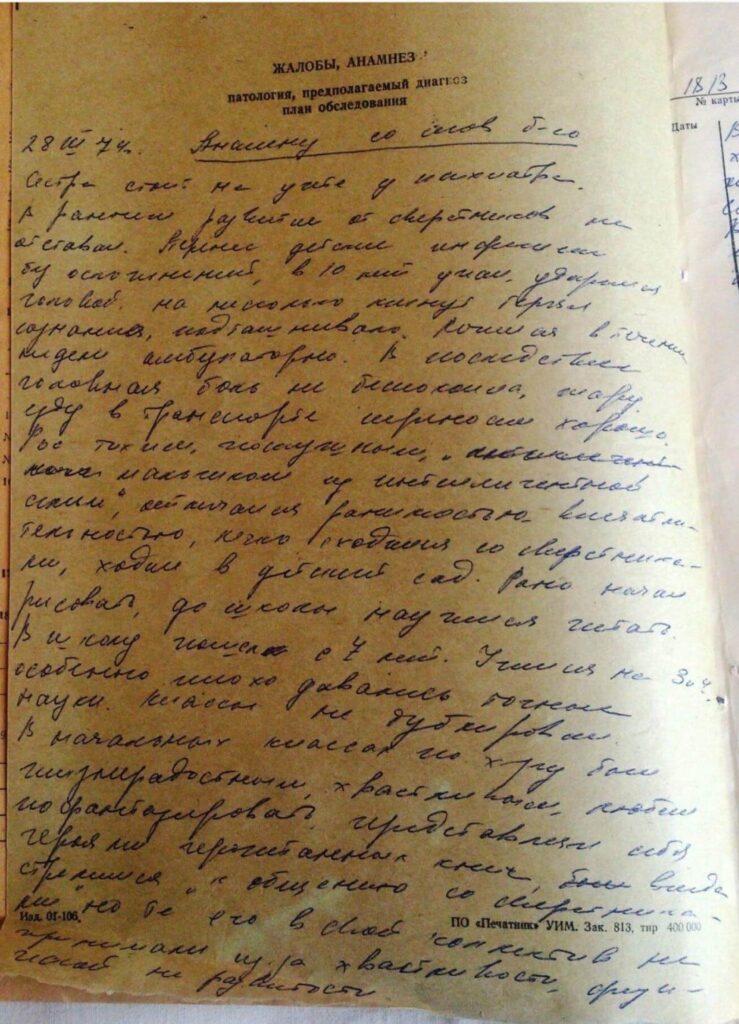 ЖАЛОБЫ, АНАМНЕЗ
патология, предполагаемый диагноз
план обследования
28 III 74г. Анамнез со слов б-го
Сестра стоит на учете у психиатра.
В раннем развитии от сверстников не
отставал. Перенес детские инфекции
без осложнений, в 10 лет ударился
головой. на несколько минут терял
сознание, подташнивало. Лечился в течении
недели амбулаторно. В последствии
головная боль не беспокоила, жару,
езду в транспорте переносил хорошо.
Рос тихим, послушным,
мальчиком из интеллигентной
семьи", отличался ранимостью впечатли-
тельностью, легко сходился со сверстника-
ми, ходил в детский сад. Рано начал
рисовать, до школы научился читать.
В школу пошел с 7 лет. Учился на 3 и 4.
особенно плохо давались точные
науки. Классы не дублировал.
В начальных классах по х-ру был
жизнерадостным, хвастливым, любил
пофантазировать, представлял себя
героями прочитанных книг,
стремился к общению со сверстника-
ми" но те его в свой коллектив не
Изд. 01-106. ПО «Печатник» УИМ. Зак. 813, тир 400 000
принимали из за хвастливости, физи-
ческой не развитости
1813
№ карты
Даты